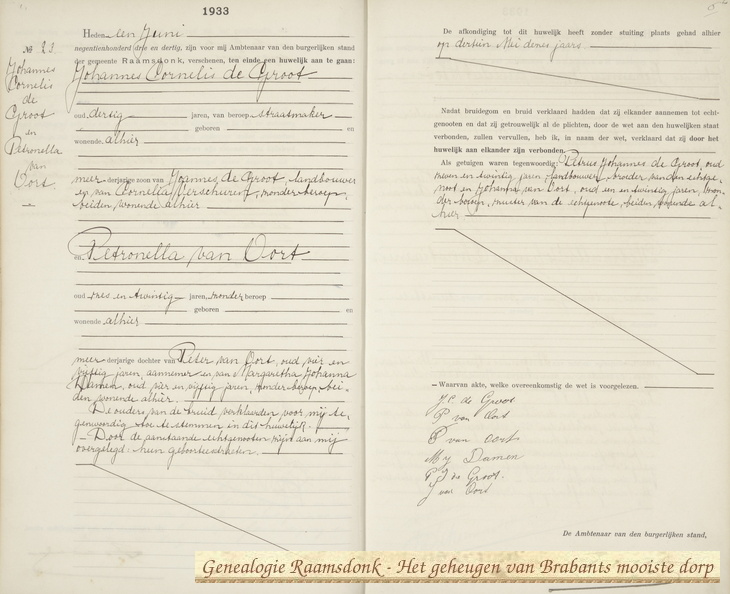 1933
№ 23.
Johannes
Cornelis
de
Groot
en
Petronella
van
Oort.
Heden den Juni
negentienhonderd drie en dertig, zijn voor mij Ambtenaar van den burgerlijken stand
der gemeente Raamsdonk, verschenen, ten einde een huwelijk aan te gaan:
Johannes Cornelis de Groot
oud dertig jaren, van beroep straatmaker
geboren en
wonende alhier
meerderjarige zoon van Johannes de Groot, landbouwer
en van Cornelia Verschuren, zonder beroep,
beiden wonende alhier
en Petronella van Oort
oud en twintig jaren, zonder beroep
geboren en
wonende alhier
meerderjarige dochter van Peter van Oort, oud vier en
vijftig jaren, aannemer en van Margaretha Johanna
Damen, oud vier en vijftig jaren, zonder beroep, bei-
den wonende alhier.
De ouders van de bruid verklaarden voor mij te-
genwoordig toe te stemmen in dit huwelijk.
Door de aanstaande echtgenooten zijn aan mij
overgelegd: hun geboorteextracten.
De afkondiging tot dit huwelijk heeft zonder stuiting plaats gehad alhier
op dertien Mei dezes jaars.
Nadat bruidegom en bruid verklaard hadden dat zij elkander aannemen tot echt-
genooten en dat zij getrouwelijk al de plichten, door de wet aan den huwelijken staat
verbonden, zullen vervullen, heb ik, in naam der wet, verklaard dat zij door het
huwelijk aan elkander zijn verbonden.
Als getuigen waren tegenwoordig: Petrus Johannes de Groot, oud
zeven en twintig jaren, landbouwer, broeder van den echtge-
noot en Johanna van Oort, oud een en twintig jaren, zon-
der beroep, zuster van de echtgenoote, beiden wonende al-
hier
Waarvan akte, welke overeenkomstig de wet is voorgelezen.
J. C. de Groot
P van Oort
P van Oort
M J Damen
P J de Groot.
J van Oort
De Ambtenaar van den burgerlijken stand,
Genealogie Raamsdonk - Het geheugen van Brabants mooiste dorp